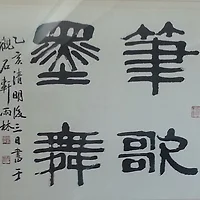 筆歌
墨舞
乙亥清明後三日書于
觀石軒雨林